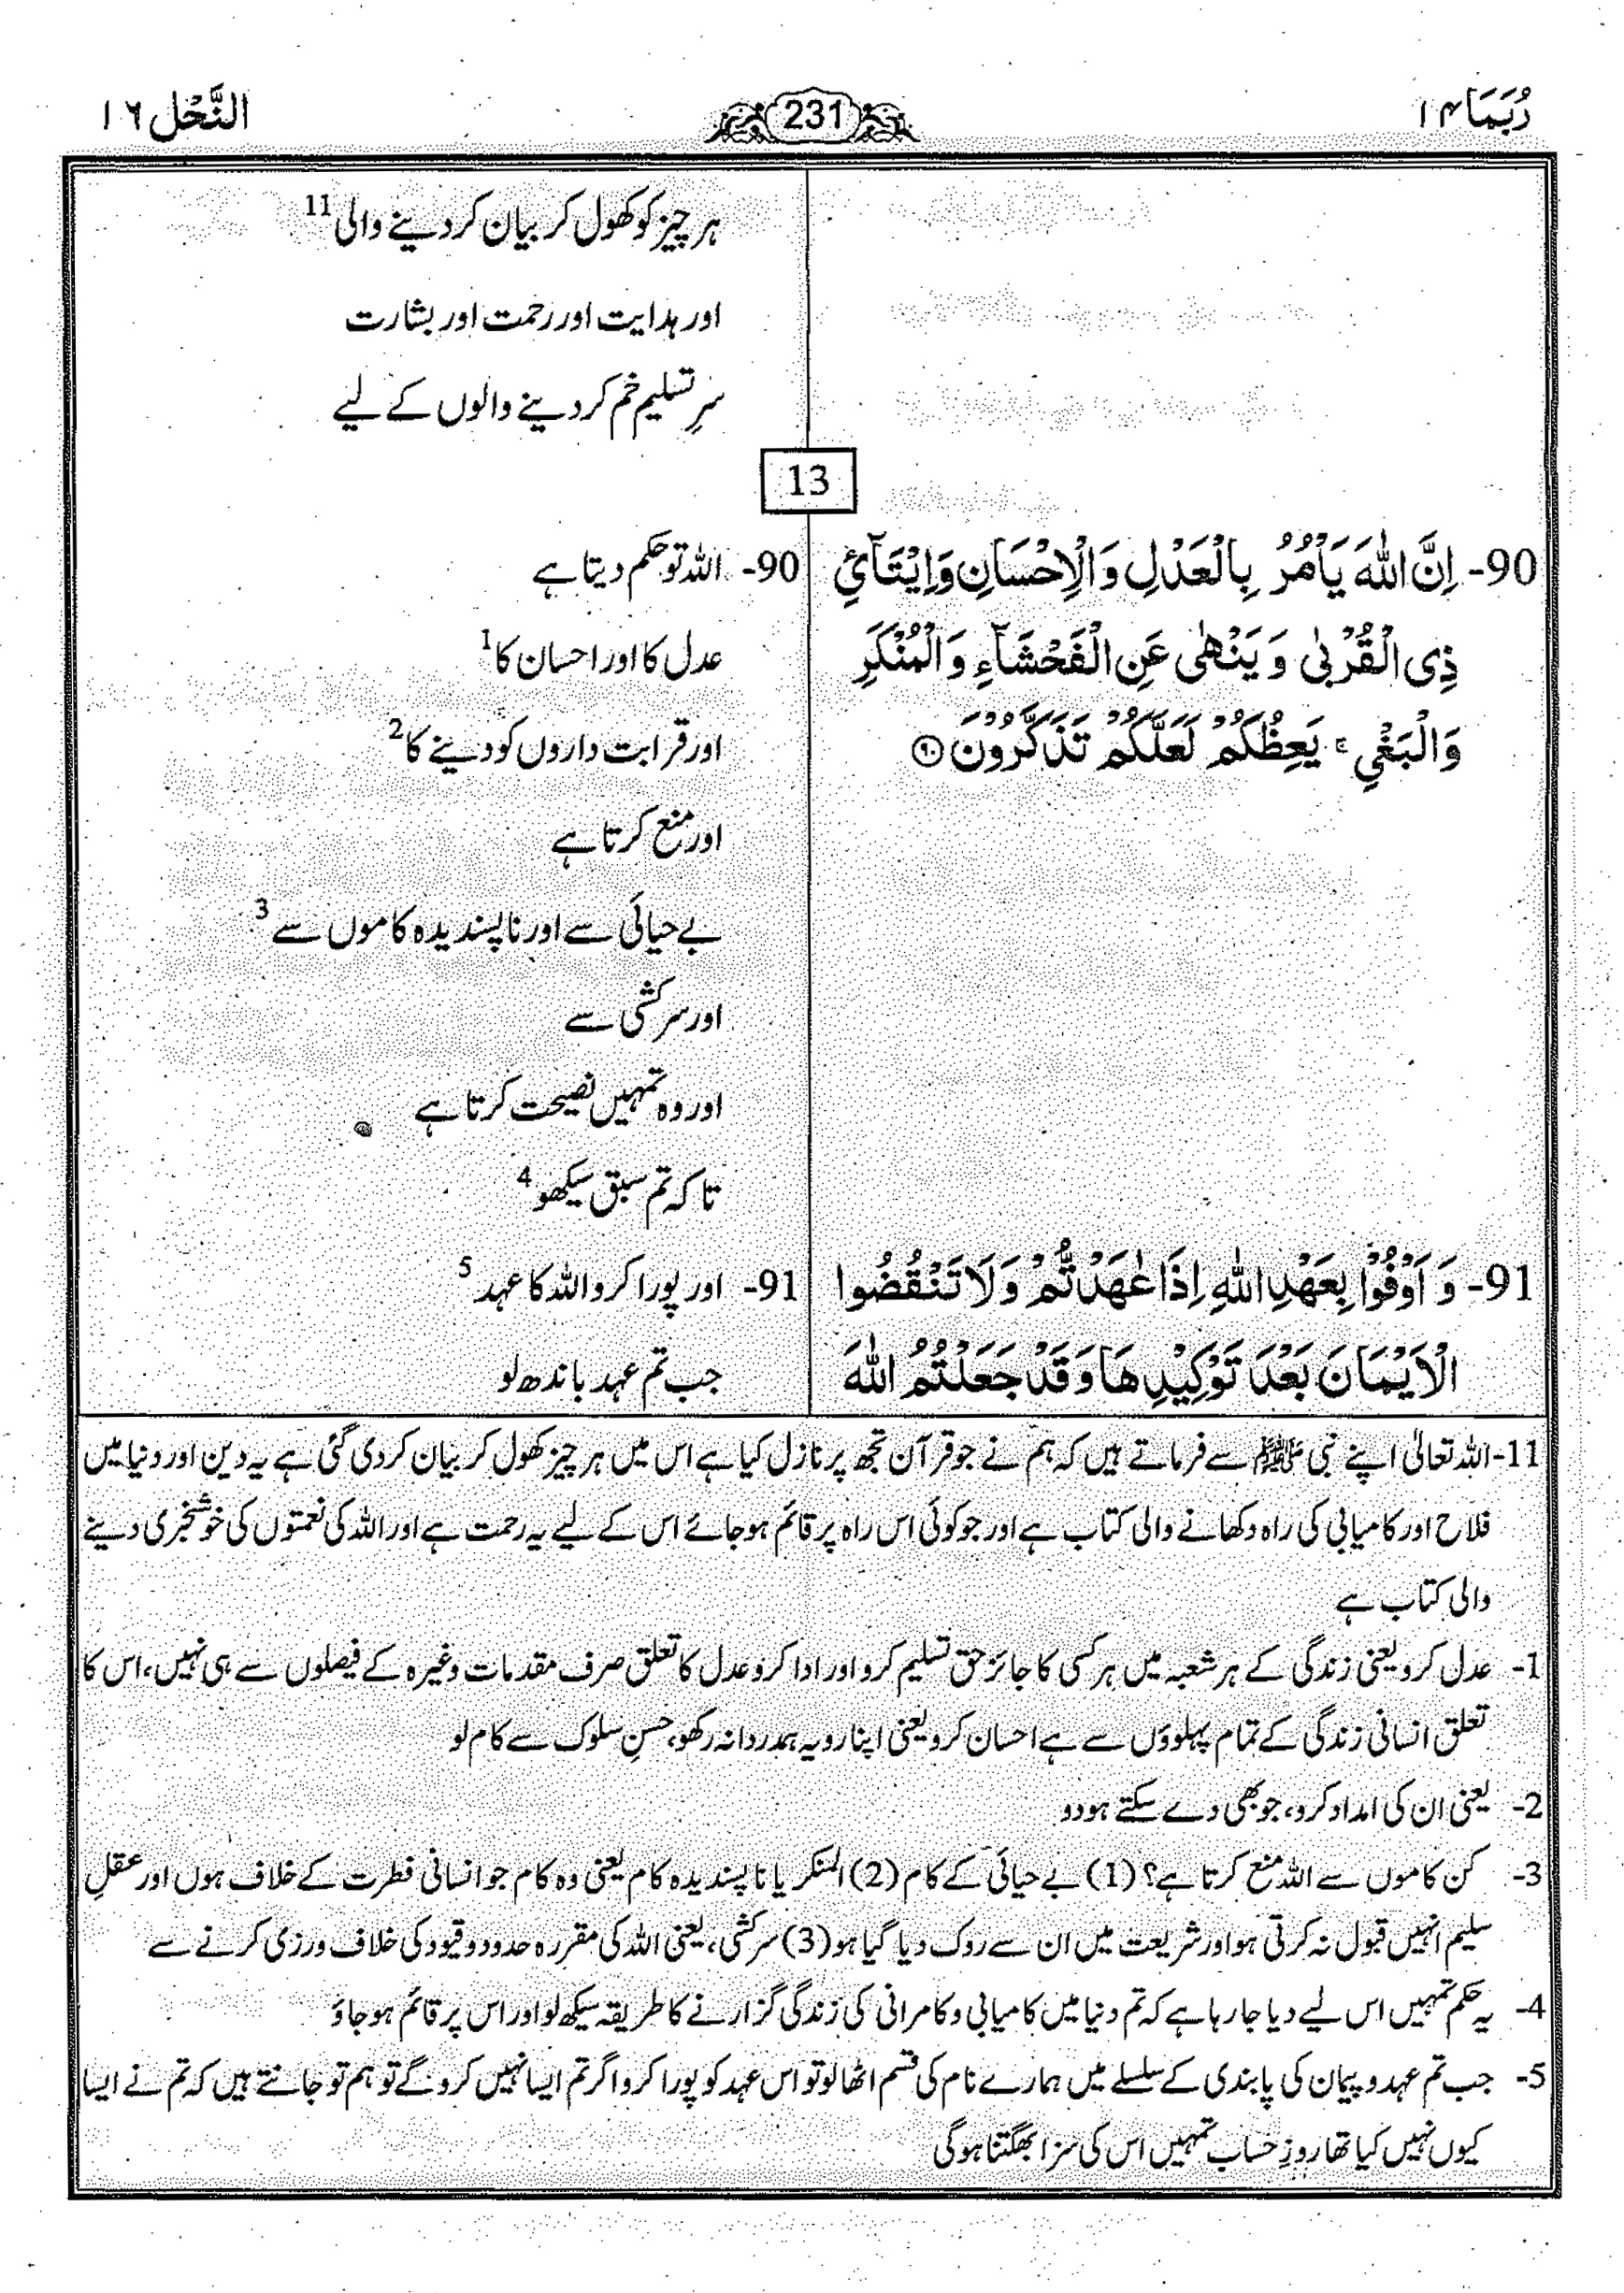 رُبَمَا ۱۴
231
النَّحْل ۱۶
ہر چیز کو کھول کر بیان کر دینے والی 11
اور ہدایت اور رحمت اور بشارت
سرِ تسلیم خم کر دینے والوں کے لیے
13
90- اِنَّ اللّٰهَ يَاْمُرُ بِالْعَدْلِ وَالْاِحْسَانِ وَاِيْتَآئِ
ذِي الْقُرْبٰى وَيَنْهٰى عَنِ الْفَحْشَآءِ وَالْمُنْكَرِ
وَالْبَغْيِ ۚ يَعِظُكُمْ لَعَلَّكُمْ تَذَكَّرُوْنَ ۹۰
90- اللہ تو حکم دیتا ہے
عدل کا اور احسان کا 1
اور قرابت داروں کو دینے کا 2
اور منع کرتا ہے
بے حیائی سے اور ناپسندیدہ کاموں سے 3
اور سرکشی سے
اور وہ تمہیں نصیحت کرتا ہے
تاکہ تم سبق سیکھو 4
91- وَاَوْفُوْا بِعَهْدِ اللّٰهِ اِذَا عٰهَدْتُّمْ وَلَا تَنْقُضُوا
الْاَيْمَانَ بَعْدَ تَوْكِيْدِهَا وَقَدْ جَعَلْتُمُ اللّٰهَ
91- اور پورا کرو اللہ کا عہد 5
جب تم عہد باندھ لو
11- اللہ تعالیٰ اپنے نبی ﷺ سے فرماتے ہیں کہ ہم نے جو قرآن تجھ پر نازل کیا ہے اس میں ہر چیز کھول کر بیان کر دی گئی ہے یہ دین اور دنیا میں
فلاح اور کامیابی کی راہ دکھانے والی کتاب ہے اور جو کوئی اس راہ پر قائم ہو جائے اس کے لیے یہ رحمت ہے اور اللہ کی نعمتوں کی خوشخبری دینے
والی کتاب ہے
1- عدل کرو یعنی زندگی کے ہر شعبہ میں ہر کسی کا جائز حق تسلیم کرو اور ادا کرو عدل کا تعلق صرف مقدمات وغیرہ کے فیصلوں سے ہی نہیں، اس کا
تعلق انسانی زندگی کے تمام پہلوؤں سے ہے احسان کرو یعنی اپنا رویہ ہمدردانہ رکھو، حسنِ سلوک سے کام لو
2- یعنی ان کی امداد کرو، جو بھی دے سکتے ہو دو
3- کن کاموں سے اللہ منع کرتا ہے؟ (1) بے حیائی کے کام (2) المنکر یا ناپسندیدہ کام یعنی وہ کام جو انسانی فطرت کے خلاف ہوں اور عقلِ
سلیم انہیں قبول نہ کرتی ہو اور شریعت میں ان سے روک دیا گیا ہو (3) سرکشی، یعنی اللہ کی مقررہ حدود و قیود کی خلاف ورزی کرنے سے
4- یہ حکم تمہیں اس لیے دیا جا رہا ہے کہ تم دنیا میں کامیابی و کامرانی کی زندگی گزارنے کا طریقہ سیکھ لو اور اس پر قائم ہو جاؤ
5- جب تم عہد و پیمان کی پابندی کے سلسلے میں ہمارے نام کی قسم اٹھا لو تو اس عہد کو پورا کرو اگر تم ایسا نہیں کرو گے تو ہم تو جانتے ہیں کہ تم نے ایسا
کیوں نہیں کیا تھا روزِ حساب تمہیں اس کی سزا بھگتنا ہوگی